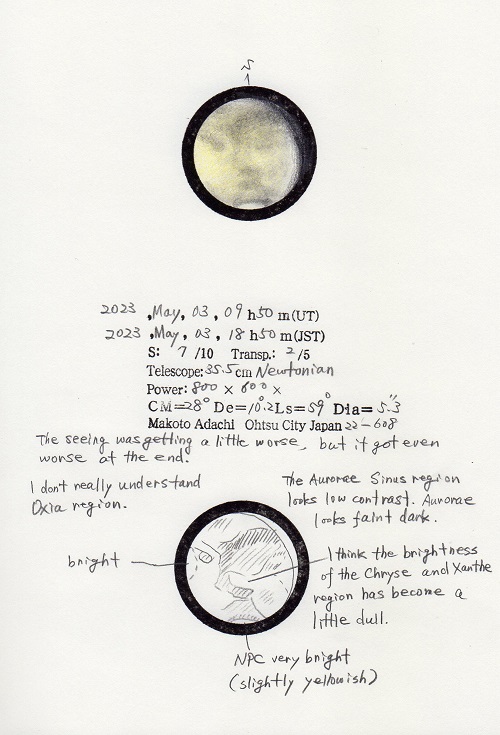 S
2023 ,May, 03, 09 h50 m(UT)
2023 ,May, 03, 18 h50 m(JST)
S: 7 /10 Transp.: 2 /5
Telescope: 35.5 cm Newtonian
Power: 800 × 600 ×
CM=28° De=10.2 Ls=59° Dia= 5."3
Makoto Adachi Ohtsu City Japan 22-608
The seeing was getting a little worse, but it got even
worse at the end.
I don't really understand
Oxia region.
The Aurorae Sinus region
looks low contrast. Aurorae
looks faint dark.
bright
I think the brightness
of the Chryse and Xanthe
region has become a
little dull.
NPC very bright
(slightly yellowish)